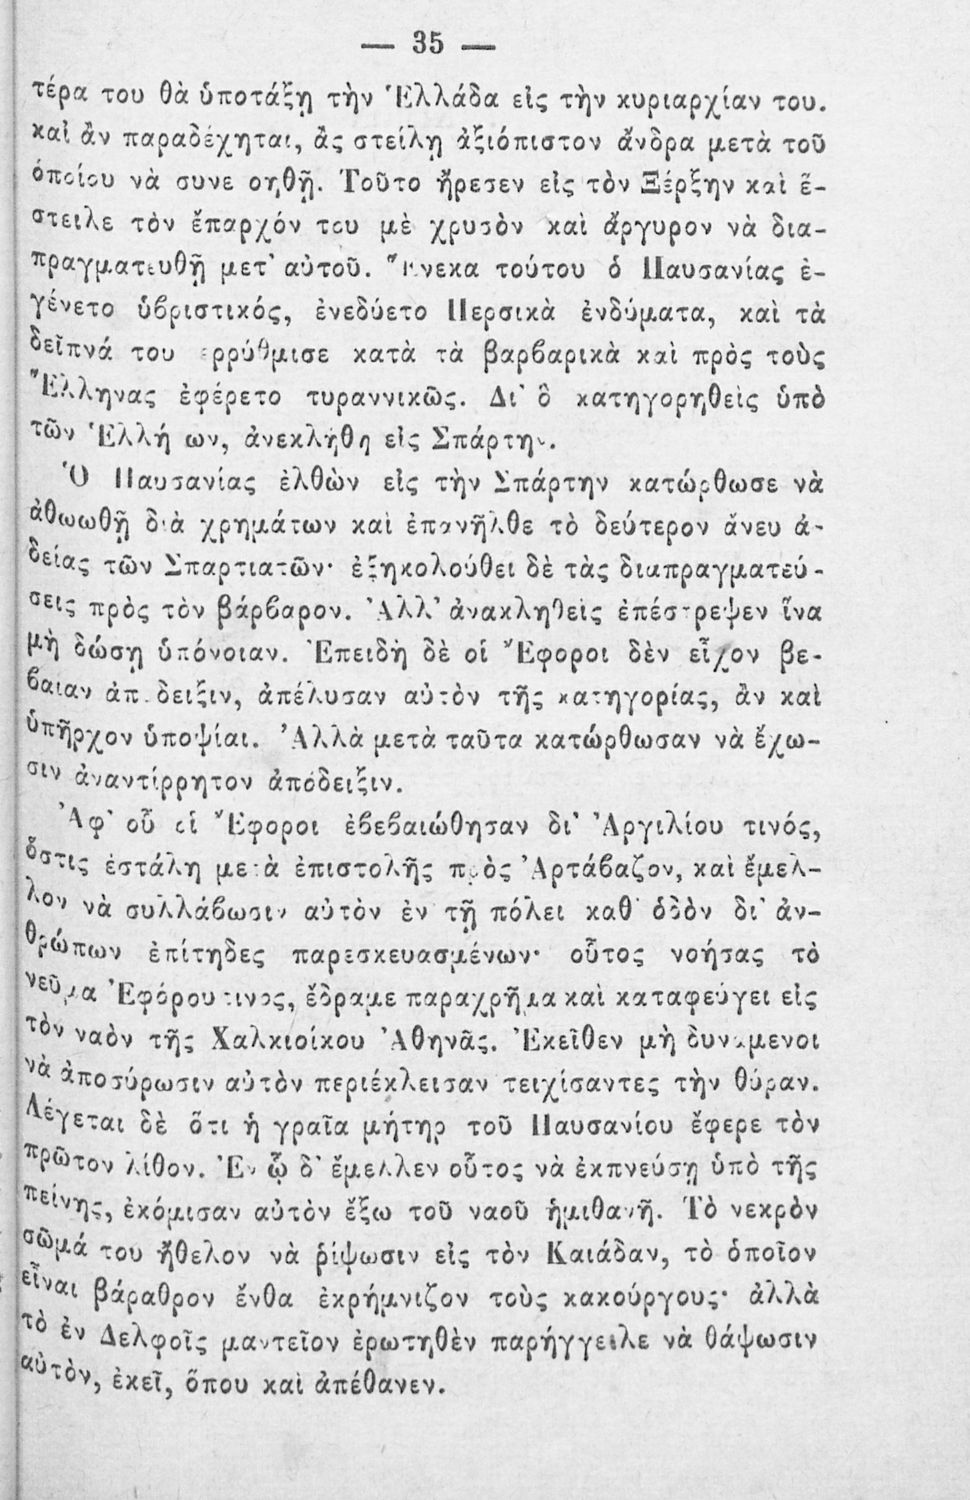 — 35 —
τέρα του θὰ ὑποτάξῃ τὴν Ἑλλάδα εἰς τὴν κυριαρχίαν του.
καὶ ἂν παραδέχηται, ἂς στείλῃ ἀξιόπιστον ἄνδρα μετὰ τοῦ
ὁποίου νὰ συνε οηθῇ. Τοῦτο ἤρεσεν εἰς τὸν Ξέρξην καὶ ἔ-
στειλε τὸν ἔπαρχόν του μὲ χρυσὸν καὶ ἄργυρον νὰ δια-
πραγματευθῇ μετ' αὐτοῦ. Ἕνεκα τούτου ὁ Παυσανίας ἐ-
γένετο ὑβριστικός, ἐνεδύετο Περσικὰ ἐνδύματα, καὶ τὰ
δεῖπνά του ἐρρύθμισε κατὰ τὰ βαρβαρικὰ καὶ πρὸς τοὺς
Ἕλληνας ἐφέρετο τυραννικῶς. Δι' ὃ κατηγορηθεὶς ὑπὸ
τῶν Ἑλλή ων, ἀνεκλήθη εἰς Σπάρτην.
Ὁ Παυσανίας ἐλθὼν εἰς τὴν Σπάρτην κατώρθωσε νὰ
ἀθωωθῇ διὰ χρημάτων καὶ ἐπανῆλθε τὸ δεύτερον ἄνευ ἀ-
δείας τῶν Σπαρτιατῶν· ἐξηκολούθει δὲ τὰς διαπραγματεύ-
σεις πρὸς τὸν βάρβαρον. Ἀλλ' ἀνακληθεὶς ἐπέστρεψεν ἵνα
μὴ δώσῃ ὑπόνοιαν. Ἐπειδὴ δὲ οἱ Ἔφοροι δὲν εἶχον βε-
βαιαν ἀπ.δειξιν, ἀπέλυσαν αὐτὸν τῆς κατηγορίας, ἂν καὶ
ὑπῆρχον ὑποψίαι. Ἀλλὰ μετὰ ταῦτα κατώρθωσαν νὰ ἔχω-
σιν ἀναντίρρητον ἀπόδειξιν.
Ἀφ' οὗ οἱ Ἔφοροι ἐβεβαιώθησαν δι' Ἀργιλίου τινός,
ὅστις ἐστάλη μετὰ ἐπιστολῆς πρὸς Ἀρτάβαζον, καὶ ἔμελ-
λον νὰ συλλάβωσιν αὐτὸν ἐν τῇ πόλει καθ' ὁδὸν δι' ἀν-
θρώπων ἐπίτηδες παρεσκευασμένων· οὗτος νοήσας τὸ
νεῦμα Ἐφόρου τινος, ἔδραμε παραχρῆμα καὶ καταφεύγει εἰς
τὸν ναὸν τῆς Χαλκιοίκου Ἀθηνᾶς. Ἐκεῖθεν μὴ δυνάμενοι
νὰ ἀποσύρωσιν αὐτὸν περιέκλεισαν τειχίσαντες τὴν θύραν.
Λέγεται δὲ ὅτι ἡ γραῖα μήτηρ τοῦ Παυσανίου ἔφερε τὸν
πρῶτον λίθον. Ἐν ᾧ δ' ἔμελλεν οὗτος νὰ ἐκπνεύσῃ ὑπὸ τῆς
πείνης, ἐκόμισαν αὐτὸν ἔξω τοῦ ναοῦ ἡμιθανῆ. Τὸ νεκρὸν
σῶμά του ἤθελον νὰ ῥίψωσιν εἰς τὸν Καιάδαν, τὸ ὁποῖον
εἶναι βάραθρον ἔνθα ἐκρήμνιζον τοὺς κακούργους· ἀλλὰ
τὸ ἐν Δελφοῖς μαντεῖον ἐρωτηθὲν παρήγγειλε νὰ θάψωσιν
αὐτὸν, ἐκεῖ, ὅπου καὶ ἀπέθανεν.